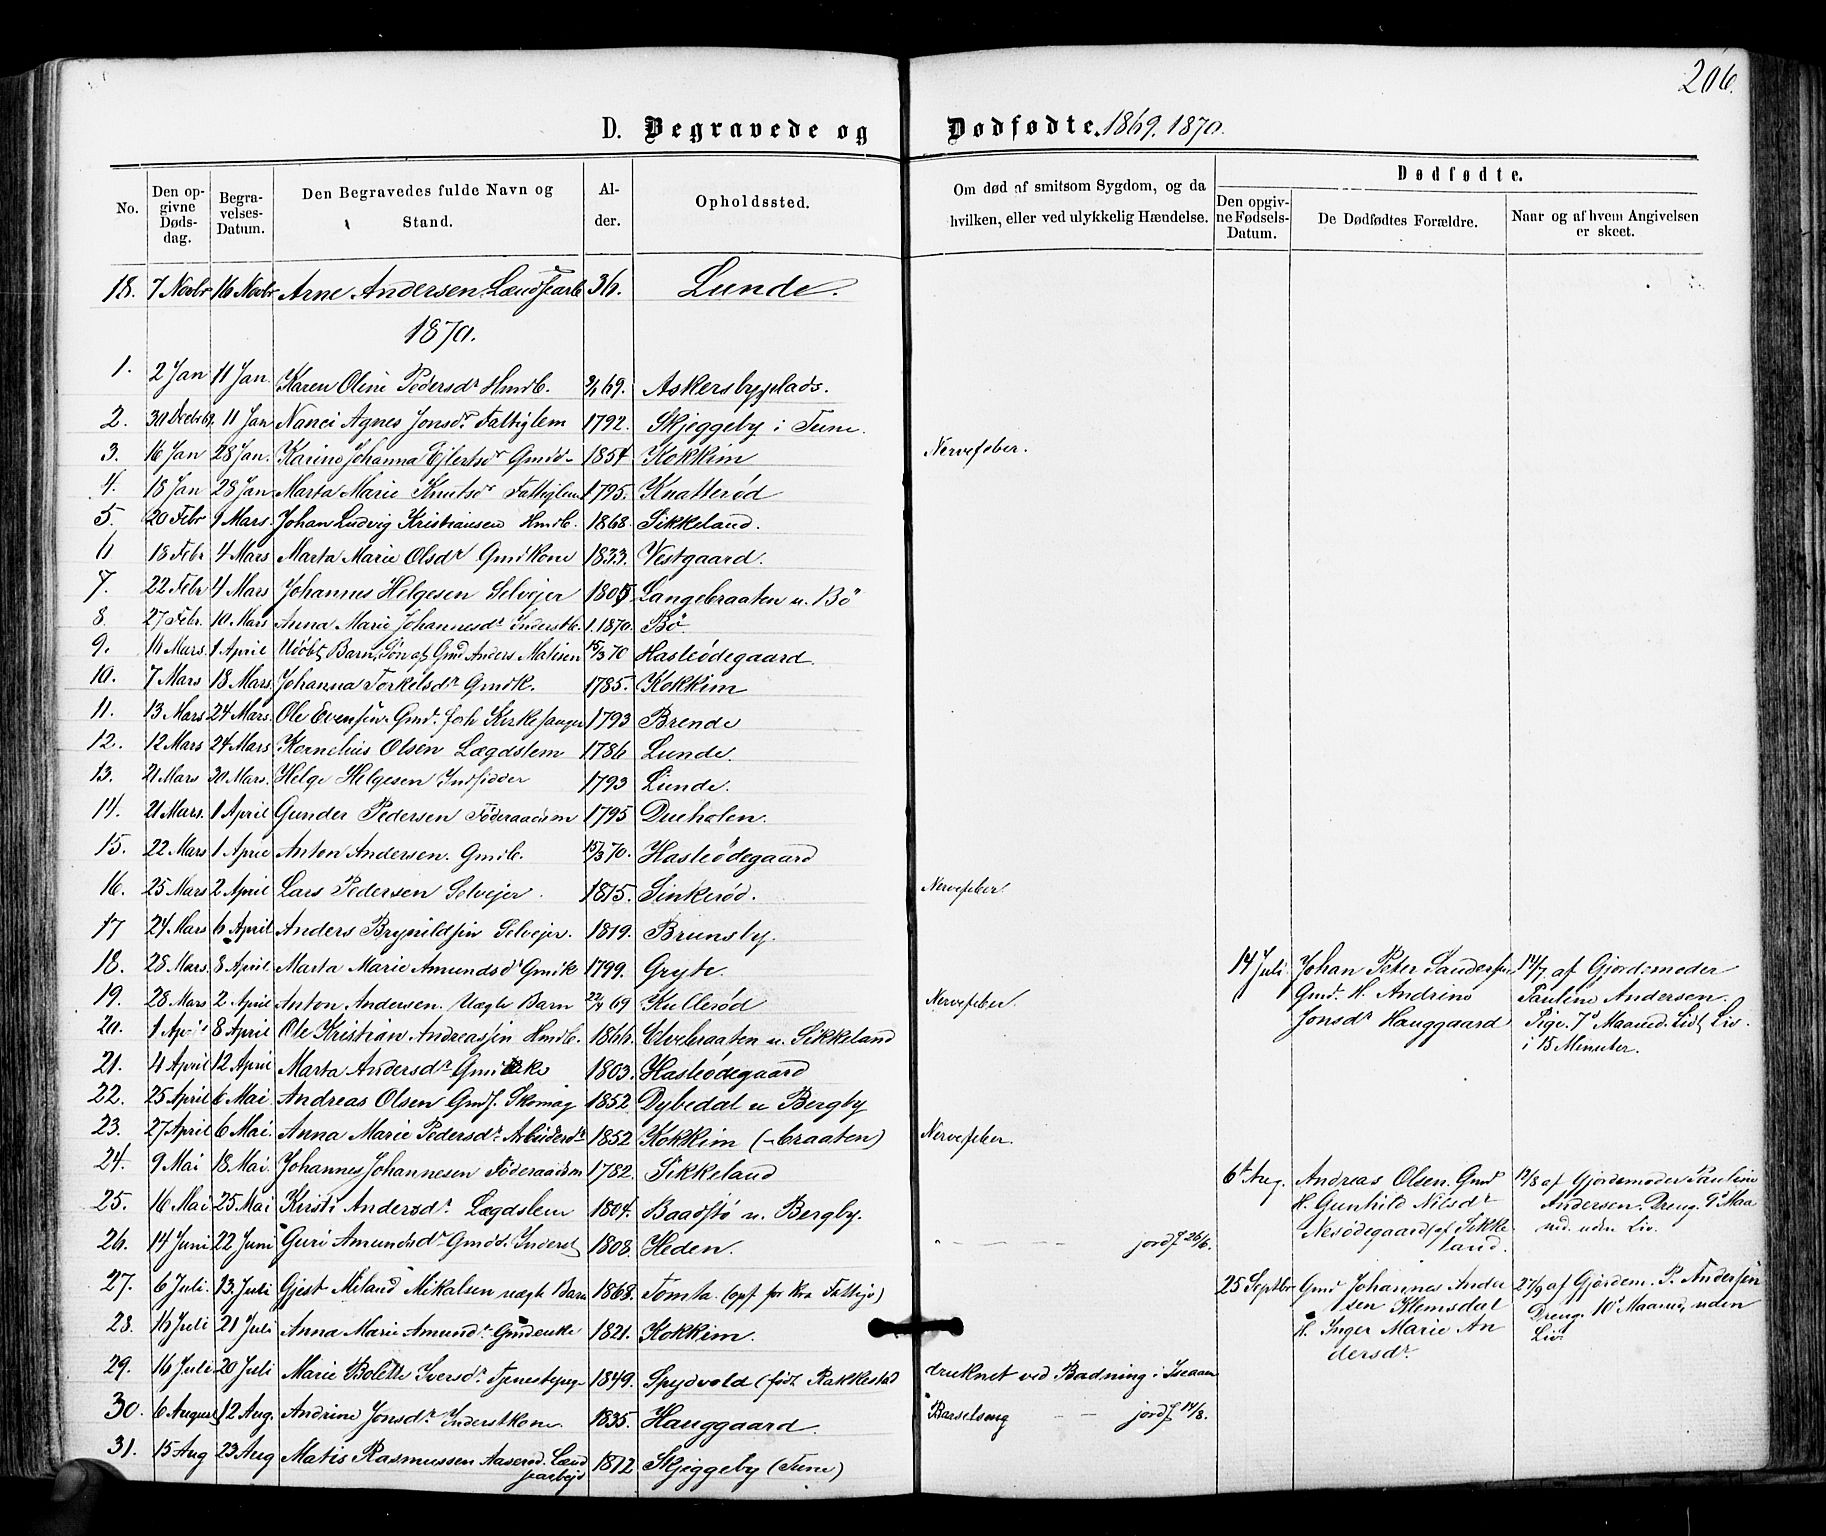 206.
D. Begravede og Dødfødte. 1869. 1870.
No.
Den opgivne Dødsdag.
Begravelses-Datum.
Den Begravedes fulde Navn og Stand.
Alder.
Opholdssted.
Om død af smitsom Sygdom, og da hvilken, eller ved ulykkelig Hændelse.
Dødfødte.
Den opgivne Fødsels-Datum.
De Dødfødtes Forældre.
Naar og af hvem Angivelsen er skeet.
18. 7 Novbr 16 Novbr Arne Andersen 36. Lunde.
1870.
1. 2 Jan 11 Jan. Karen Oline Pedersdr Hmdb. 69. Askersbyplads.
2. 30 Decbr 69. 11 Jan Nanci Agnes Jonsdr Fattiglem 1792. Skjeggeby i Tune.
3. 16 Jan 28 Jan. Karine Johanna Ejlertsdr 1854 Kokkim Nervefeber.
4. 18 Jan 28 Jan Marta Marie Knutsdr Fattiglem 1795. Knatterød
5. 20 Febr 9 Mars. Johan Ludvig Kristiansen Hmdb. 1868. Sikkeland.
6 18 Febr 4 Mars Marta Marie Olsdr Gmdkone 1833. Vestgaard.
7. 22 Febr 4 Mars Johannes Helgesen Selvejer 1805 Langebraaten u. Bø
8. 27 Febr. 10 Mars Anna Marie Johannesdr Inderstb. 1.1870. Bø.
9. 16 Mars. 1 April Udøbt Barn, Søn af Gmd Anders Matisen 15/3 70 Hasleødegaard.
10. 7 Mars 18 Mars. Johanna Torkelsdr Gmdk. 1785. Kokkim
11. 13 Mars 24 Mars. Ole Evensen Gmd. forh Kirkesanger 1793 Brende
12. 12 Mars 24 Mars Kornelius Olsen Lægdslem 1786 Lunde.
13. 21 Mars 30 Mars. Helge Helgesen Indsidder 1793 Lunde.
14. 21 Mars. 1 April Gunder Pedersen Føderaadsm 1795 Dueholen.
15. 22 Mars 1 April Anton Andersen. Gmdb. 15/3 70. Hasleødegaard
16. 25 Mars 2 April Lars Pedersen Selvejer. 1815. Sinkerød. Nervefeber
17 24 Mars 6 April Anders Brynildsen Selvejer. 1819. Brunsby.
18. 28 Mars. 8 April Marta Marie Amundsdr Gmdk 1799. Gryte.
19. 28 Mars 2 April Anton Andersen. Uægte Barn 22/4 69 Kullerød Nervefeber.
20. 1 Apr 8 April Ole Kristian Andreassen Hmdb. 1866. Elvebraaten u. Sikkeland
21. 4 April 12 April Marta Andersdr 1803. Hasleødegaard
22. 25 April 6 Mai Andreas Olsen Gmdf. Skomag 1852 Dybedal u Bergby
23. 27 April 6 Mai. Anna Marie Pedersdr. Arbeiderdr 1852 Kokkim (-braaten) Nervefeber.
24. 9 Mai 18 Mai. Johannes Johannesen Føderaadsm 1782. Sikkeland
25. 16 Mai 25 Mai Kirsti Andersdr. Lægdslem 1804. Baadstø u. Bergby.
26. 14 Juni 22 Juni Guri Amundsdr 1808. Heden. jordf 26/6.
27. 6 Juli. 13. Juli Gjest Miland Mikalsen uægte Barn 1868. Tomta. (opf. for Kra Fattigv)
28. 16 Juli 21 Juli Anna Marie Amundr Gmdenke 1821. Kokkim.
29. 16 Juli 20 Juli Marie Bolette Iversdr Tjenestepige 1849. Spydvold (født Rakkestad druknet ved Badning i Iseaaen
30. 6 August 12 Aug. Andrine Jonsdr Inderstkone. 1835. Hauggaard. Barselseng jordf 14/8.
31. 15 Aug 23 Aug Matis Rasmussen Aaserød. 1812 Skjeggeby (Tune)
14 Juli Johan Peter Gmd. H. Andrine Jonsdr Hauggaard
14/7 af Gjordemoder Pauline Andersen. Pige. 7 Maaned. Lidt Liv i 15 Minuter.
6t Aug. Andreas Olsen. Gmd H. Gunhild Nilsdr Nesødegaard af Sikkeland.
12/8 af Gjordemoder Pauline Andersen. Dreng. 9 Maaned. uden Liv.
25 Septbr Gmd Johannes Andersen Klemsdal H. Inger Marie Andersdr.
27/9 af Gjordem. P. Andersen Dreng. 10 Maaned, uden Liv.